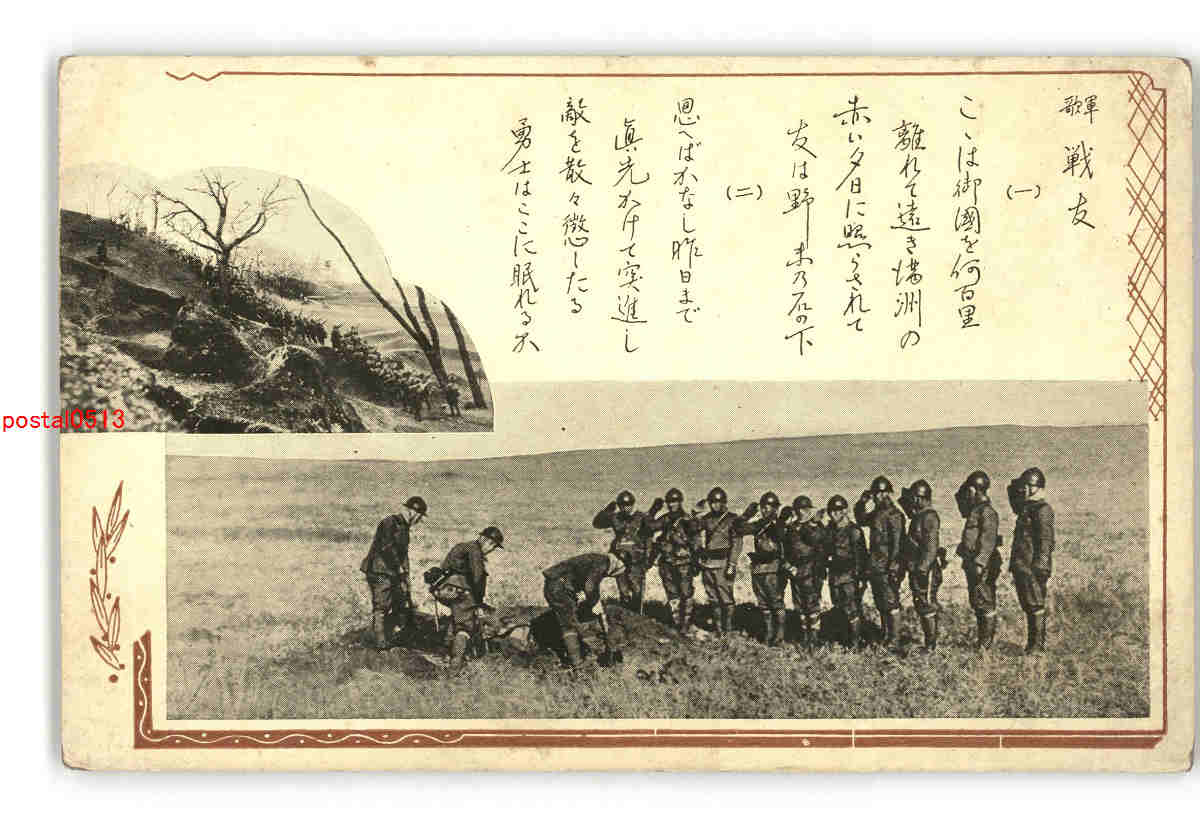 軍歌 戦友
(一)
こゝは御國を何百里
離れて遠き満洲の
赤い夕日に照らされて
友は野末乃石の下
(二)
思へばかなし昨日まで
眞先かけて突進し
敵を散々懲したる
勇士はここに眠れるか
postal0513